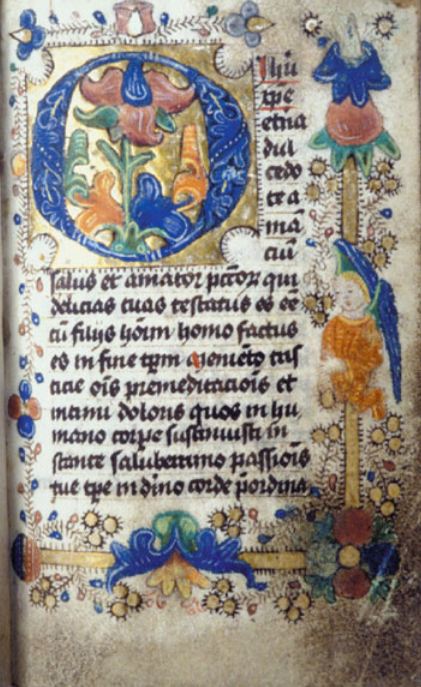 O Ihū
xpe
etna
dul
cedo
te a
mā
ciū
salus et amator pctoꝝ qui
delicias tuas testatus es ee
cū filijs hōim homo factus
es in fine tpm memēto tris
ticie oīs premeditaciōis et
intimi doloris quos in hu
mano corpe sustinuisti in
stante saluberrimo passiōis
tue tpe in diīno corde p̄ordina